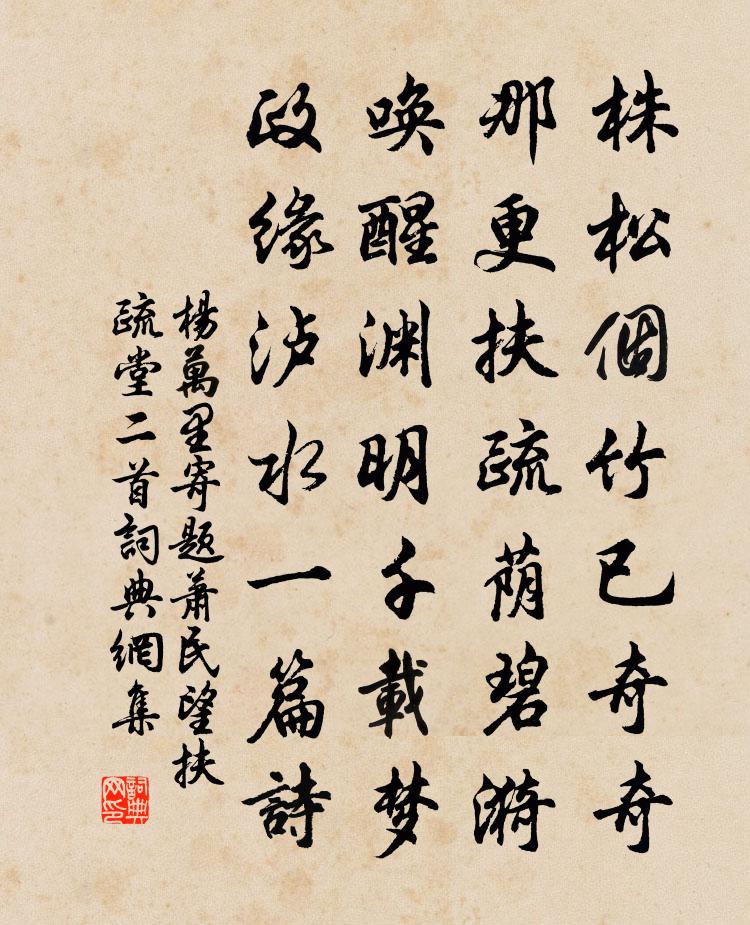 株松個竹已奇奇
那更扶疏荫碧漪
唤醒渊明千載梦
政缘泸水一篇詩
楊萬里寄题萧民望扶
疏堂二首詞典網集
詞典网印